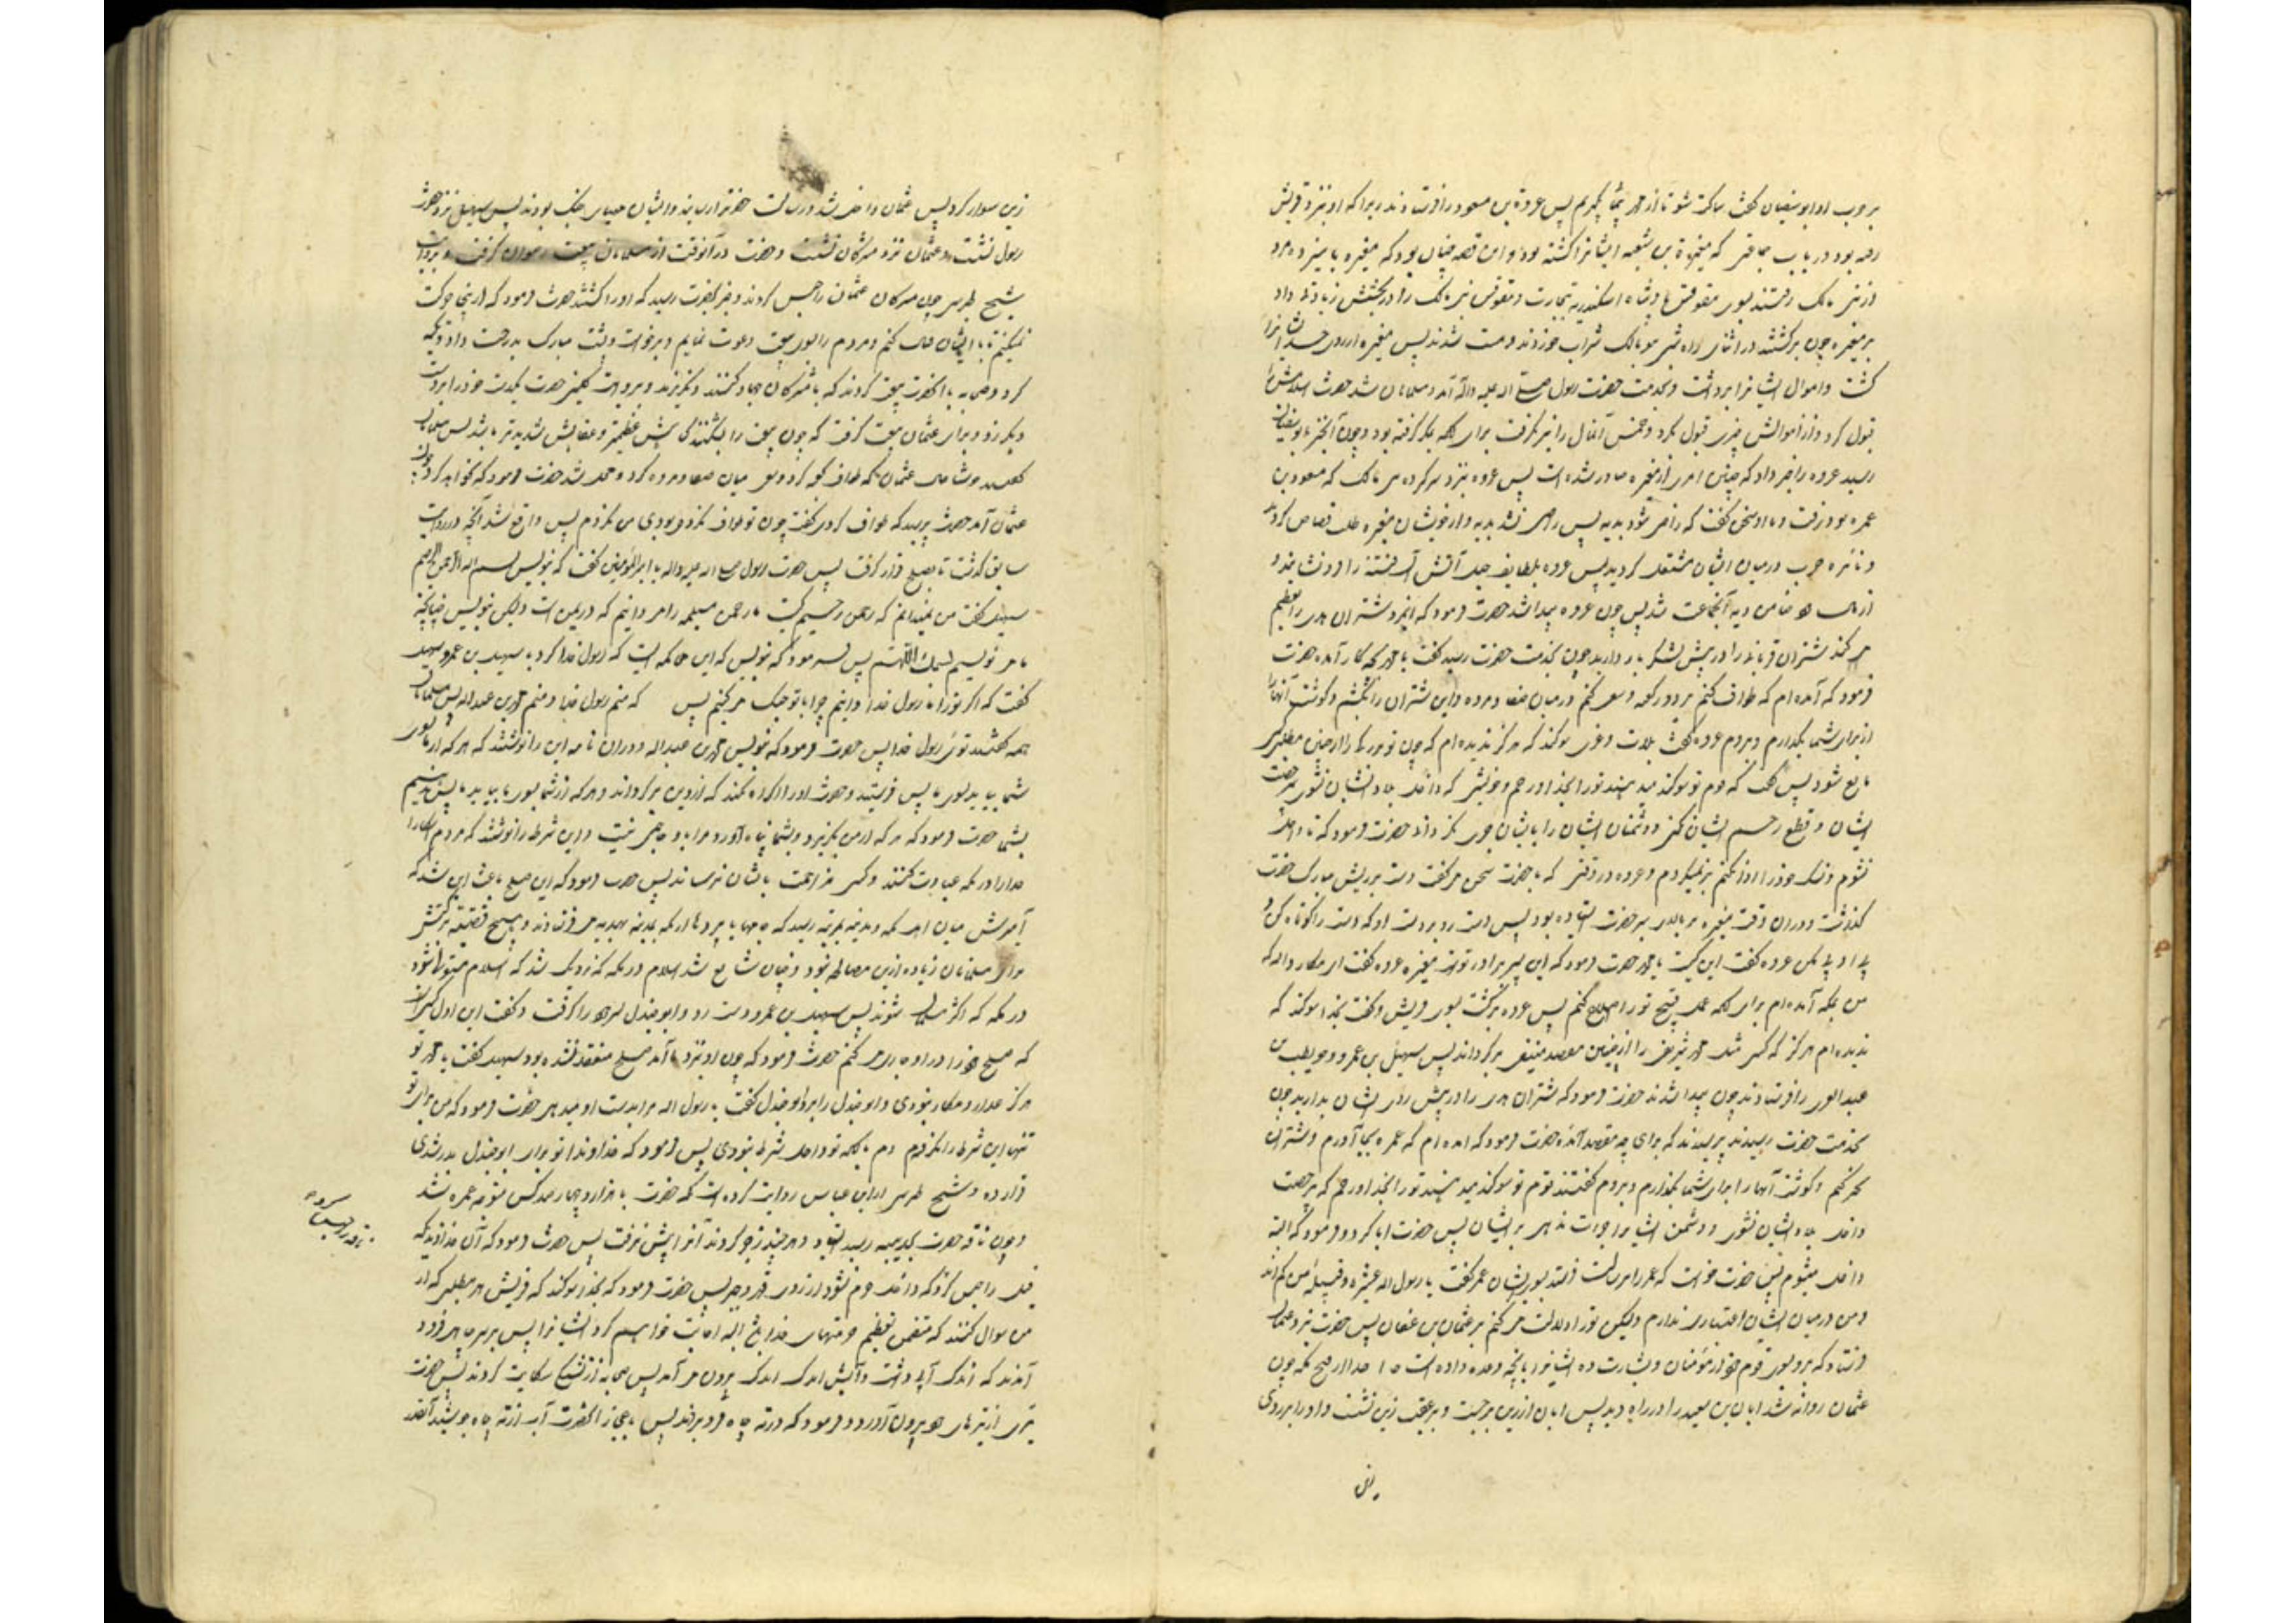 ابوسفیان گفت ساکت شو تا از محمد پس عروة بن مسعود را فرستادند زیرا که او نزد قریش
رفته بود در باب جماعتی که مغیرة بن شعبه ایشانرا کشته بود و این قصه چنان بود که مغیره با سیزده مرد
از بنی مالک رفتند بسوی مقوقس پادشاه اسکندریه بتجارت و مقوقس بنی مالک را در بخشش زیادتی داد
بر مغیره چون برگشتند در اثنای راه بنی مالک شراب خوردند و مست شدند پس مغیره از روی حسد ایشانرا
کشت و اموال ایشانرا برداشت و بخدمت حضرت رسول صلی الله علیه وآله آمد و مسلمان شد حضرت اسلامش را
قبول کرد و از اموالش چیزی قبول نکرد و خمس آنمال را نیز نگرفت برای آنکه بمکر گرفته بود و چون آنخبر بابوسفیان
رسید عروه را خبر داد که چنین امری از مغیره صادر شده است پس عروه نزد سرکرده بنی مالک که مسعود بن
عمره بود رفت و با او سخن گفت که راضی شود بدیه پس راضی نشد بدیه و از خویشان مغیره طلب قصاص کردند
و نائره حرب درمیان ایشان مشتعل گردید پس عروه بلطایف حیل آتش آن فتنه را فرو نشانید و
از مال خود ضامن دیه آنجماعت شد پس چون عروه پیدا شد حضرت فرمود که شتران هدی را تعظیم
می کند شتران قربانی را در پیش لشکر باز دارید چون بخدمت حضرت رسید گفت یا محمد بچه کار آمده حضرت
فرمود که آمده ام که طواف کنم بر دور کعبه و سعی کنم درمیان صفا و مروه و این شترانرا بکشم و گوشت آنها را
از برای شما بگذارم و بروم عروه گفت بلات و عزی سوگند که هرگز ندیده ام که چون تو مردی را از چنین مطلبی کسی
مانع شود پس گفت که قوم تو سوگند میدهند تو را بخدا و رحم و خویشی که داخل بلاد ایشان نشوی بی رخصت
ایشان و قطع رحم ایشان نکنی و دشمنان ایشان را بایشان جری نگردانی حضرت فرمود که تا داخل
نشوم و نسک خود را ادا نکنم برنمیگردم و عروه در وقتی که با حضرت سخن می گفت دست بر ریش مبارک حضرت
می گذاشت و در آن وقت مغیره بر بالای سر حضرت ایستاده بود پس دست زد بر دست او که دست را کوتاه کن و
بی ادبی مکن عروه گفت این کیست یا محمد حضرت فرمود که این پسر برادر تو است مغیره عروه گفت ای مکار والله که
من بمکه آمده ام برای آنکه عمل قبیح تو را اصلاح کنم پس عروه برگشت بسوی قریش و گفت بخدا سوگند که
ندیده ام هرگز که کسی مثل محمد شریفی را از چنین مقصد برگرداند پس سهیل بن عمرو و حویطب بن
عبدالعزی را فرستادند چون پیدا شدند حضرت فرمود که شتران هدی را در پیش روی ایشان بدارید چون
بخدمت حضرت رسیدند پرسیدند که برای چه مقصد آمدهٔ حضرت فرمود که آمده ام که عمره بجا آورم و شتران
نحر کنم و گوشت آنها را برای شما بگذارم و بروم گفتند قوم تو سوگند میدهند تو را بخدا و رحم که بی رخصت
داخل بلاد ایشان نشوی و دشمن ایشانرا جرأت ندهی بر ایشان پس حضرت ابا کرد و فرمود که البته
داخل میشوم پس حضرت خواست که عمر را برسالت فرستد بسوی ایشان عمر گفت یا رسول الله عشیره و قبیله من کم اند
و من درمیان ایشان اعتباری ندارم ولیکن تو را دلالت می کنم بر عثمان بن عفان پس حضرت نزد عثمان
فرستاد که برو بسوی قوم خود از مؤمنان و بشارت ده ایشانرا بآنچه وعده داده است مرا خدا از فتح مکه چون
عثمان روانه شد ابان بن سعید را در راه دید پس ابان از زین برجست و بر عقب زین نشست و او را بر روی
زین
زین سوار کرد پس عثمان داخل شد و رسالت حضرترا رسانید و ایشان مهیای جنگ بودند پس سهیل نزد حضرت
رسول نشست و عثمان نزد مشرکان نشست و حضرت در آنوقت از مسلمانان بیعت رضوان گرفت و بروایت
شیخ طبرسی چون مشرکان عثمان را حبس کردند و خبر بحضرت رسید که او را کشتند حضرت فرمود که از اینجا حرکت
نمیکنم تا با ایشان قتال کنم و مردم را بسوی بیعت دعوت نمایم و برخواست و پشت مبارک بدرخت داد و تکیه
کرد و صحابه با آنحضرت بیعت کردند که با مشرکان جهاد کنند و نگریزند و بروایت کلینی حضرت یکدست خود را بر دست
دیگر زد و برای عثمان بیعت گرفت که چون بیعت را بشکند گناهش عظیمتر و عقابش شدیدتر باشد پس مسلمانان
گفتند خوشا حال عثمان که طواف کعبه کرد و سعی میان صفا و مروه کرد و محل شد حضرت فرمود که نخواهد کرد چون
عثمان آمد حضرت پرسید که طواف کردی گفت چون تو طواف نکرده بودی من نکردم پس واقع شد آنچه در روایت
سابق گذشت تا بصلح قرار گرفت پس حضرت رسول صلی الله علیه وآله با امیرالمؤمنین گفت که بنویس بسم الله الرحمن الرحیم
سهیل گفت من نمیدانم که رحمن و رحیم کیست ما رحمن مسیلمه را می دانیم که در یمن است ولیکن بنویس چنانچه
ما می نویسیم بسمک اللهم پس فرمود که بنویس که این محاکمه ایست که رسول خدا کرد با سهیل بن عمرو سهیل
گفت که اگر تو را ما رسول خدا دانیم چرا با تو جنگ می کنیم پس که منم رسول خدا و منم محمد بن عبدالله پس مسلمانان
همه گفتند توئی رسول خدا پس حضرت فرمود که بنویس محمد بن عبدالله و در آن نامه این را نوشتند که هر که از ما بسوی
شما بیاید بسوی ما پس فرستید و حضرت او را اکراه نکند که از دین برگرداند و هر که از شما بسوی ما بیاید ما پس ندهیم
بشما حضرت فرمود که هر که از من بگریزد و بشما پناه آورد مرا باو حاجتی نیست و این شرط را نوشتند که مردم آشکارا
خدا را در مکه عبادت کنند و کسی مزاحمت بایشان نرساند پس حضرت فرمود که این صلح باعث این شد که
آمیزش میان اهل مکه و مدینه بمرتبه رسید که جامها و پردها از مکه بمدینه بهدیه می فرستادند و هیچ قضیه برکتش
برای مسلمانان زیاده از این مصالحه نبود و چنان شایع شد اسلام در مکه که نزدیک شد که اسلام مستولی شود
در مکه که اکثر مسلمان شوند پس سهیل بن عمرو دست زد و ابوجندل پسر خود را گرفت و گفت این اول کسی است
که صلح خود را در او جاری می کنم حضرت فرمود که چون او نزد ما آمد صلح منعقد نشده بود سهیل گفت یا محمد تو
هرگز غدار و مکار نبودی و ابوجندل را برد ابوجندل گفت یا رسول الله مرا بدست او میدهی حضرت فرمود که من برای تو
تنها این شرط را نکردم بلکه تو داخل شرط نبودی پس فرمود که خداوندا تو برای ابوجندل بدر شدی
قرار ده و شیخ طبرسی از ابن عباس روایت کرده است که حضرت با هزار و چهارصد کس متوجه عمره شد
و چون ناقه حضرت بحدیبیه رسید ایستاد و هر چند زجر کردند آنرا پیش نرفت پس حضرت فرمود که آن خداوندیکه
فیل را حبس کرد که داخل حرم نشود پس حضرت فرمود که بخدا سوگند که قریش هر مطلبی که از
من سوال کنند که متضمن تعظیم حرمتهای خدا باشد البته اجابت خواهم کرد ایشانرا پس بر سر چاهی فرود
آمدند که اندک آبی داشت و آبش اندک اندک بیرون می آمد پس صحابه از تشنگی شکایت کردند پس حضرت
تیری از تیرهای خود بیرون آورد و فرمود که در ته چاه فرو بردند پس باعجاز آنحضرت آب از ته چاه جوشید آنقدر